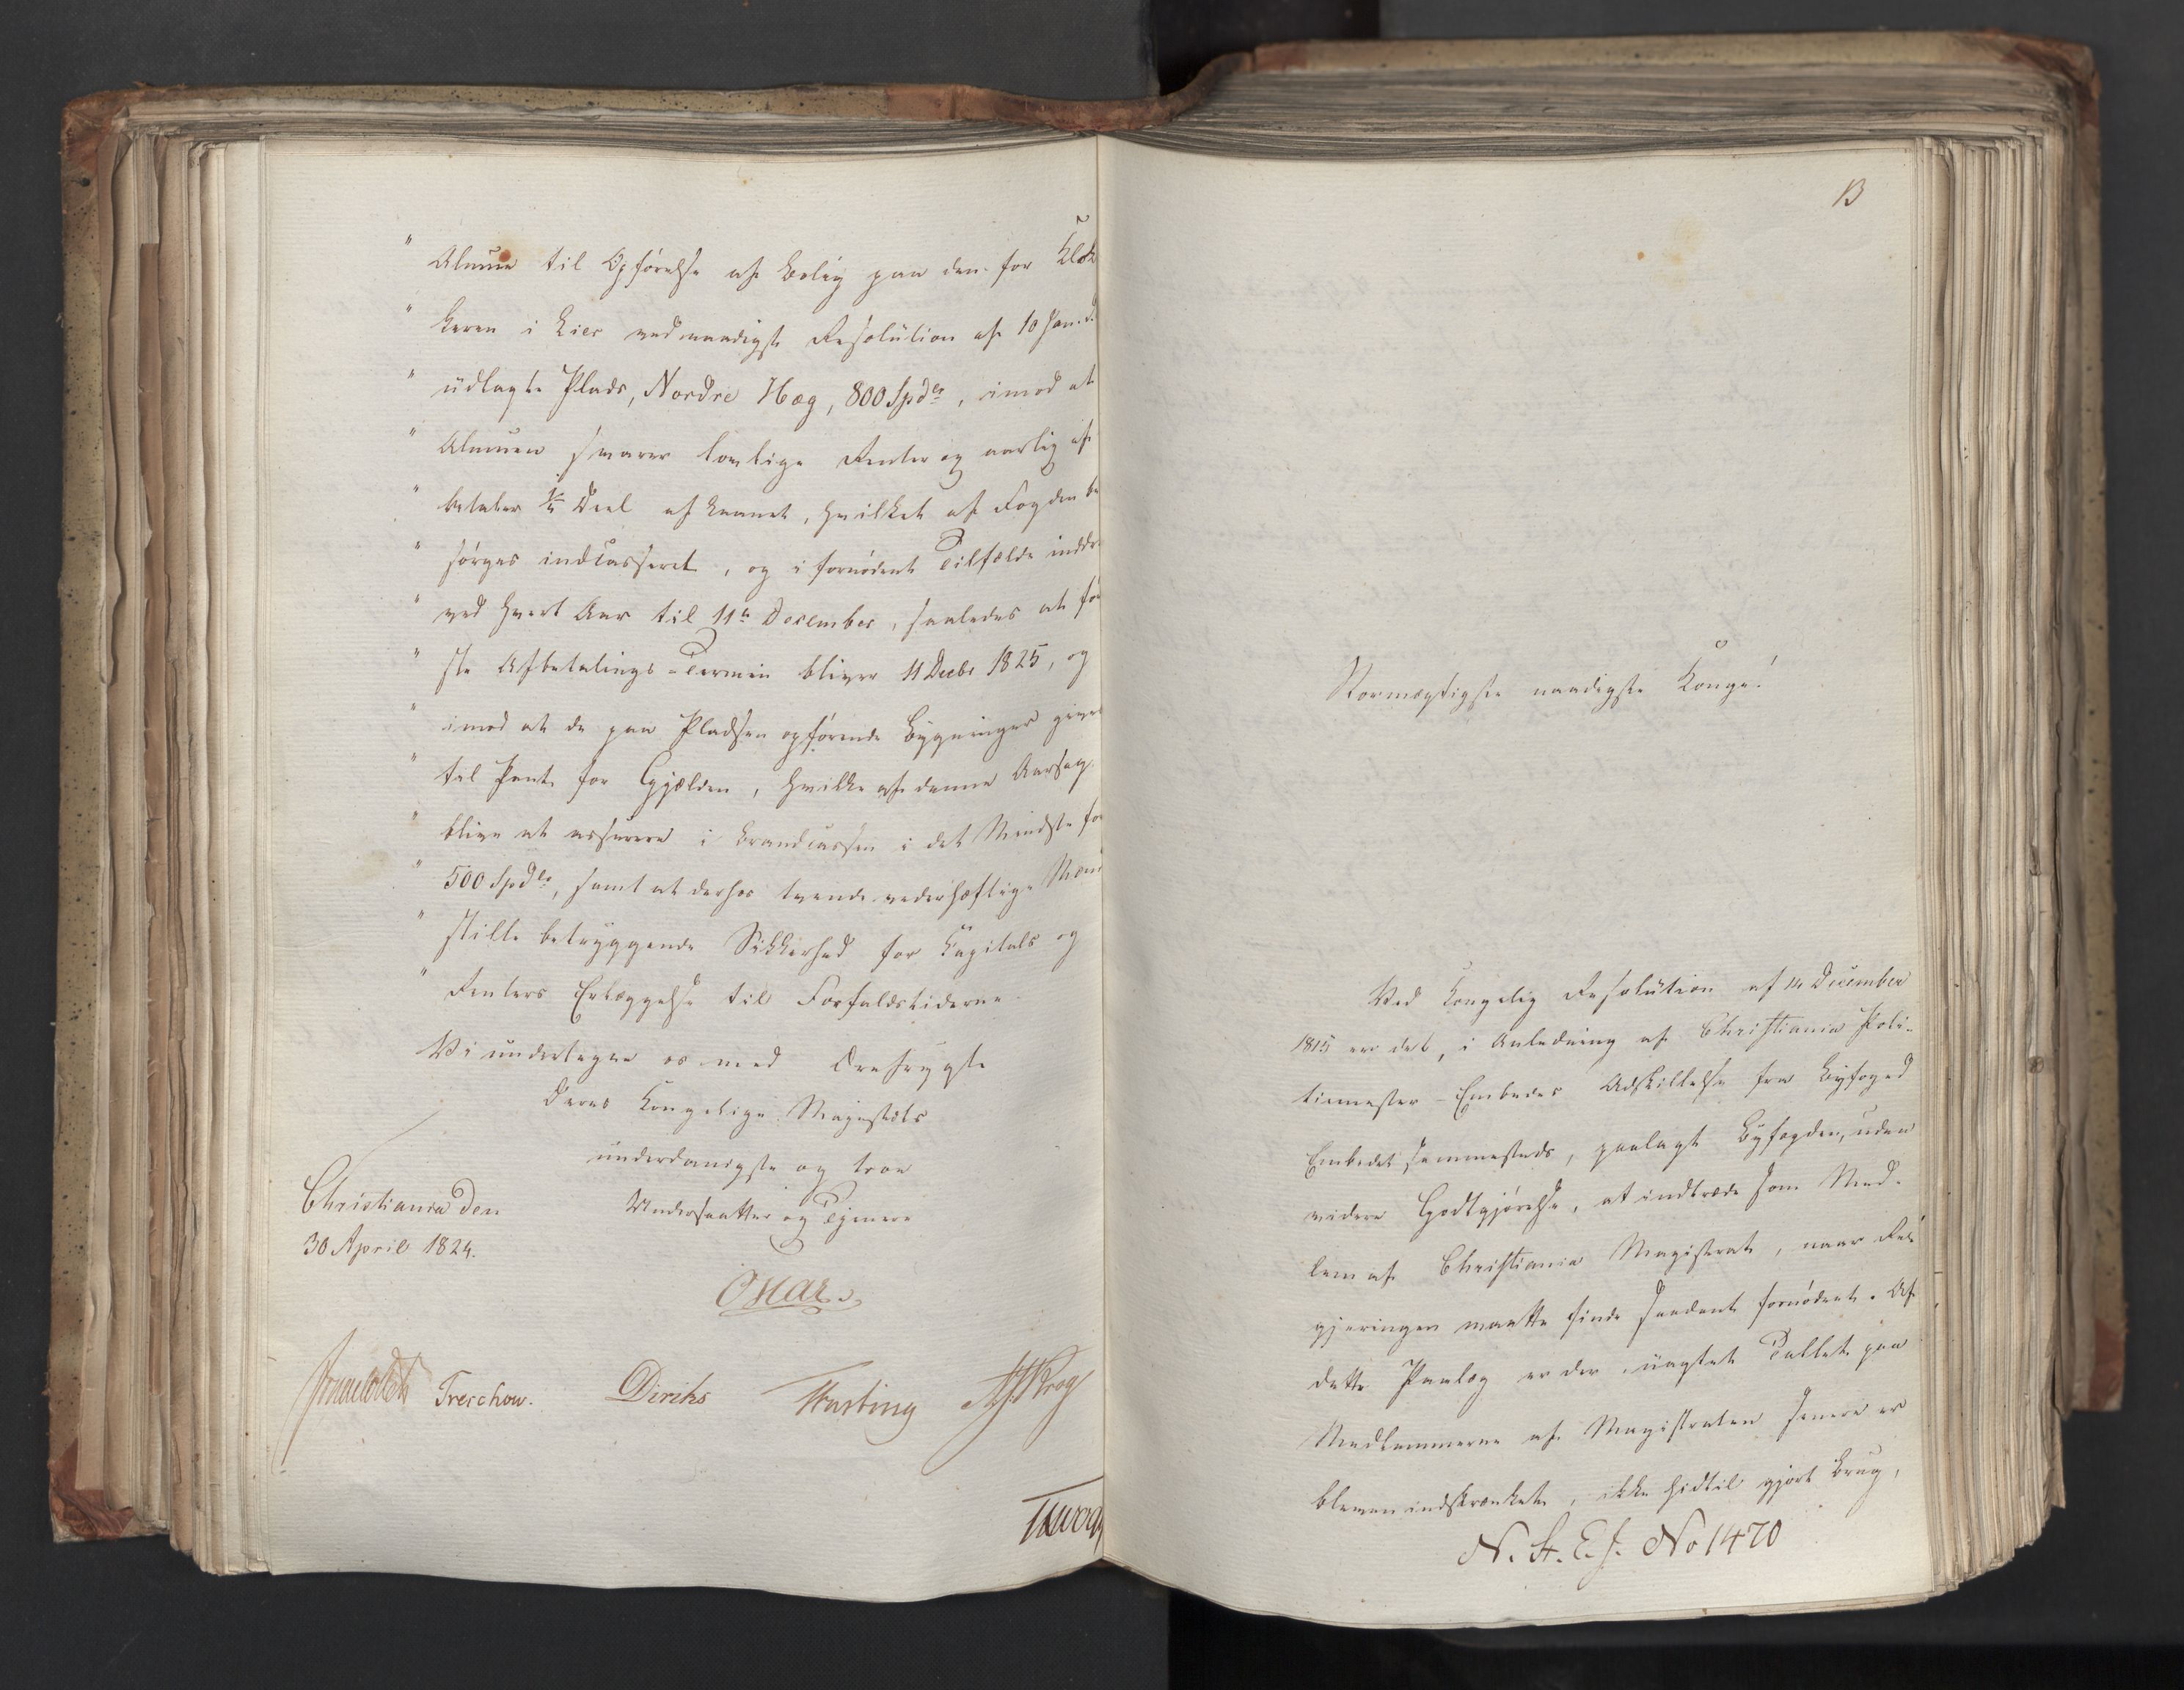 " Almue til Opførelse af Bolig paa den for Klok
" keren i Lier ved naadigst Resolution af 10 Jan. d.
" udlagte Plads, Nordre Hæg, 800 Spdlr, imod at
" Almuen svarer lovlige Renter og aarlig af
" betaler Deel af Laanet, hvilket af Fogden be
" sørges indcasseret, og i fornødent Tilfælde inddr
" ved hvert Aar til 11te December, saaledes at før
" ste Afbetalings-Termin bliver 11 Decbr 1825, og
" imod at de paa Pladsen opførende Bygninger gives
" til Pant for Gjælden, hvilke af denne Aarsag
" blive at assurere i Brandcassen i det Mindste for
" 500 Spdlr, samt at derhos tvende vederhæftige Mæn
" stille betryggende Sikkerhed for Kapitals og
" Renters Erlæggelse til Forfaldstiderne
Vi undertegne os med Ærefrygt
Deres Kongelige Majestæts
underdanigste og troe
Undersaatter og Tjenere
Christiania den
30 April 1824.
Oscar
Treschow. Diriks Fasting Krog
13
Stormægtigste naadigste Konge!
Ved Kongelig Resolution af 14 December
1815 er det, i Anledning af Christiania Poli-
tiemester-Embedes Adskillelse fra Byfoged
Embedet sammesteds, paalagt Byfogden, uden
videre Godtgjørelse, at indtræde som Med-
lem af Christiania Magistrat, naar Re-
gjeringen maatte finde saadant fornødent. Af
dette Paalæg er der, uagtet Tallet paa
Medlemmerne af Magistraten senere er
bleven indskrænket, ikke hidtil gjort Brug,
N. St. E. J. No 1470